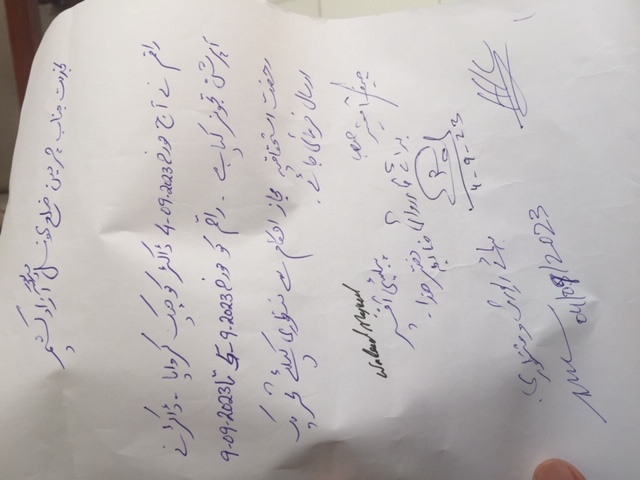 بخدمت جناب چیرمین ضلع کونسل میرپور آزاد کشمیر
راقم نے آج مورخہ 4-09-2023 ڈاکٹر کو چیک کروایا ۔ ڈاکٹر نے
آپریشن تجویز کیا ہے ۔ راقم کو مورخہ 5-9-2023 تا 9-09-2023
رخصت استحقاقیہ مجاز احکام سے منظوری کیلئے تحریک
ارسال فرمائی جائے۔
چیف آفیسر صاحب
Waleed
پبلسٹی آفیسر
برائے کارروائی
دفتر ھذا۔
4-9-23
برائے رپورٹ و منظوری۔
04/09/2023